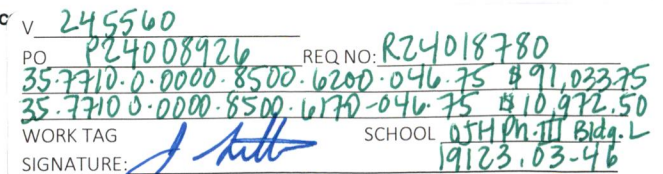 V 245560
PO P24008926 REQ NO: R24018780
35.7710.0.0000.8500.6200.046.75 $91,033.75
35.7710 0.0000.8500.6170-046.75 $10,972.50
WORK TAG SCHOOL OJH Ph.III Bldg. L
SIGNATURE: 19123.03-46